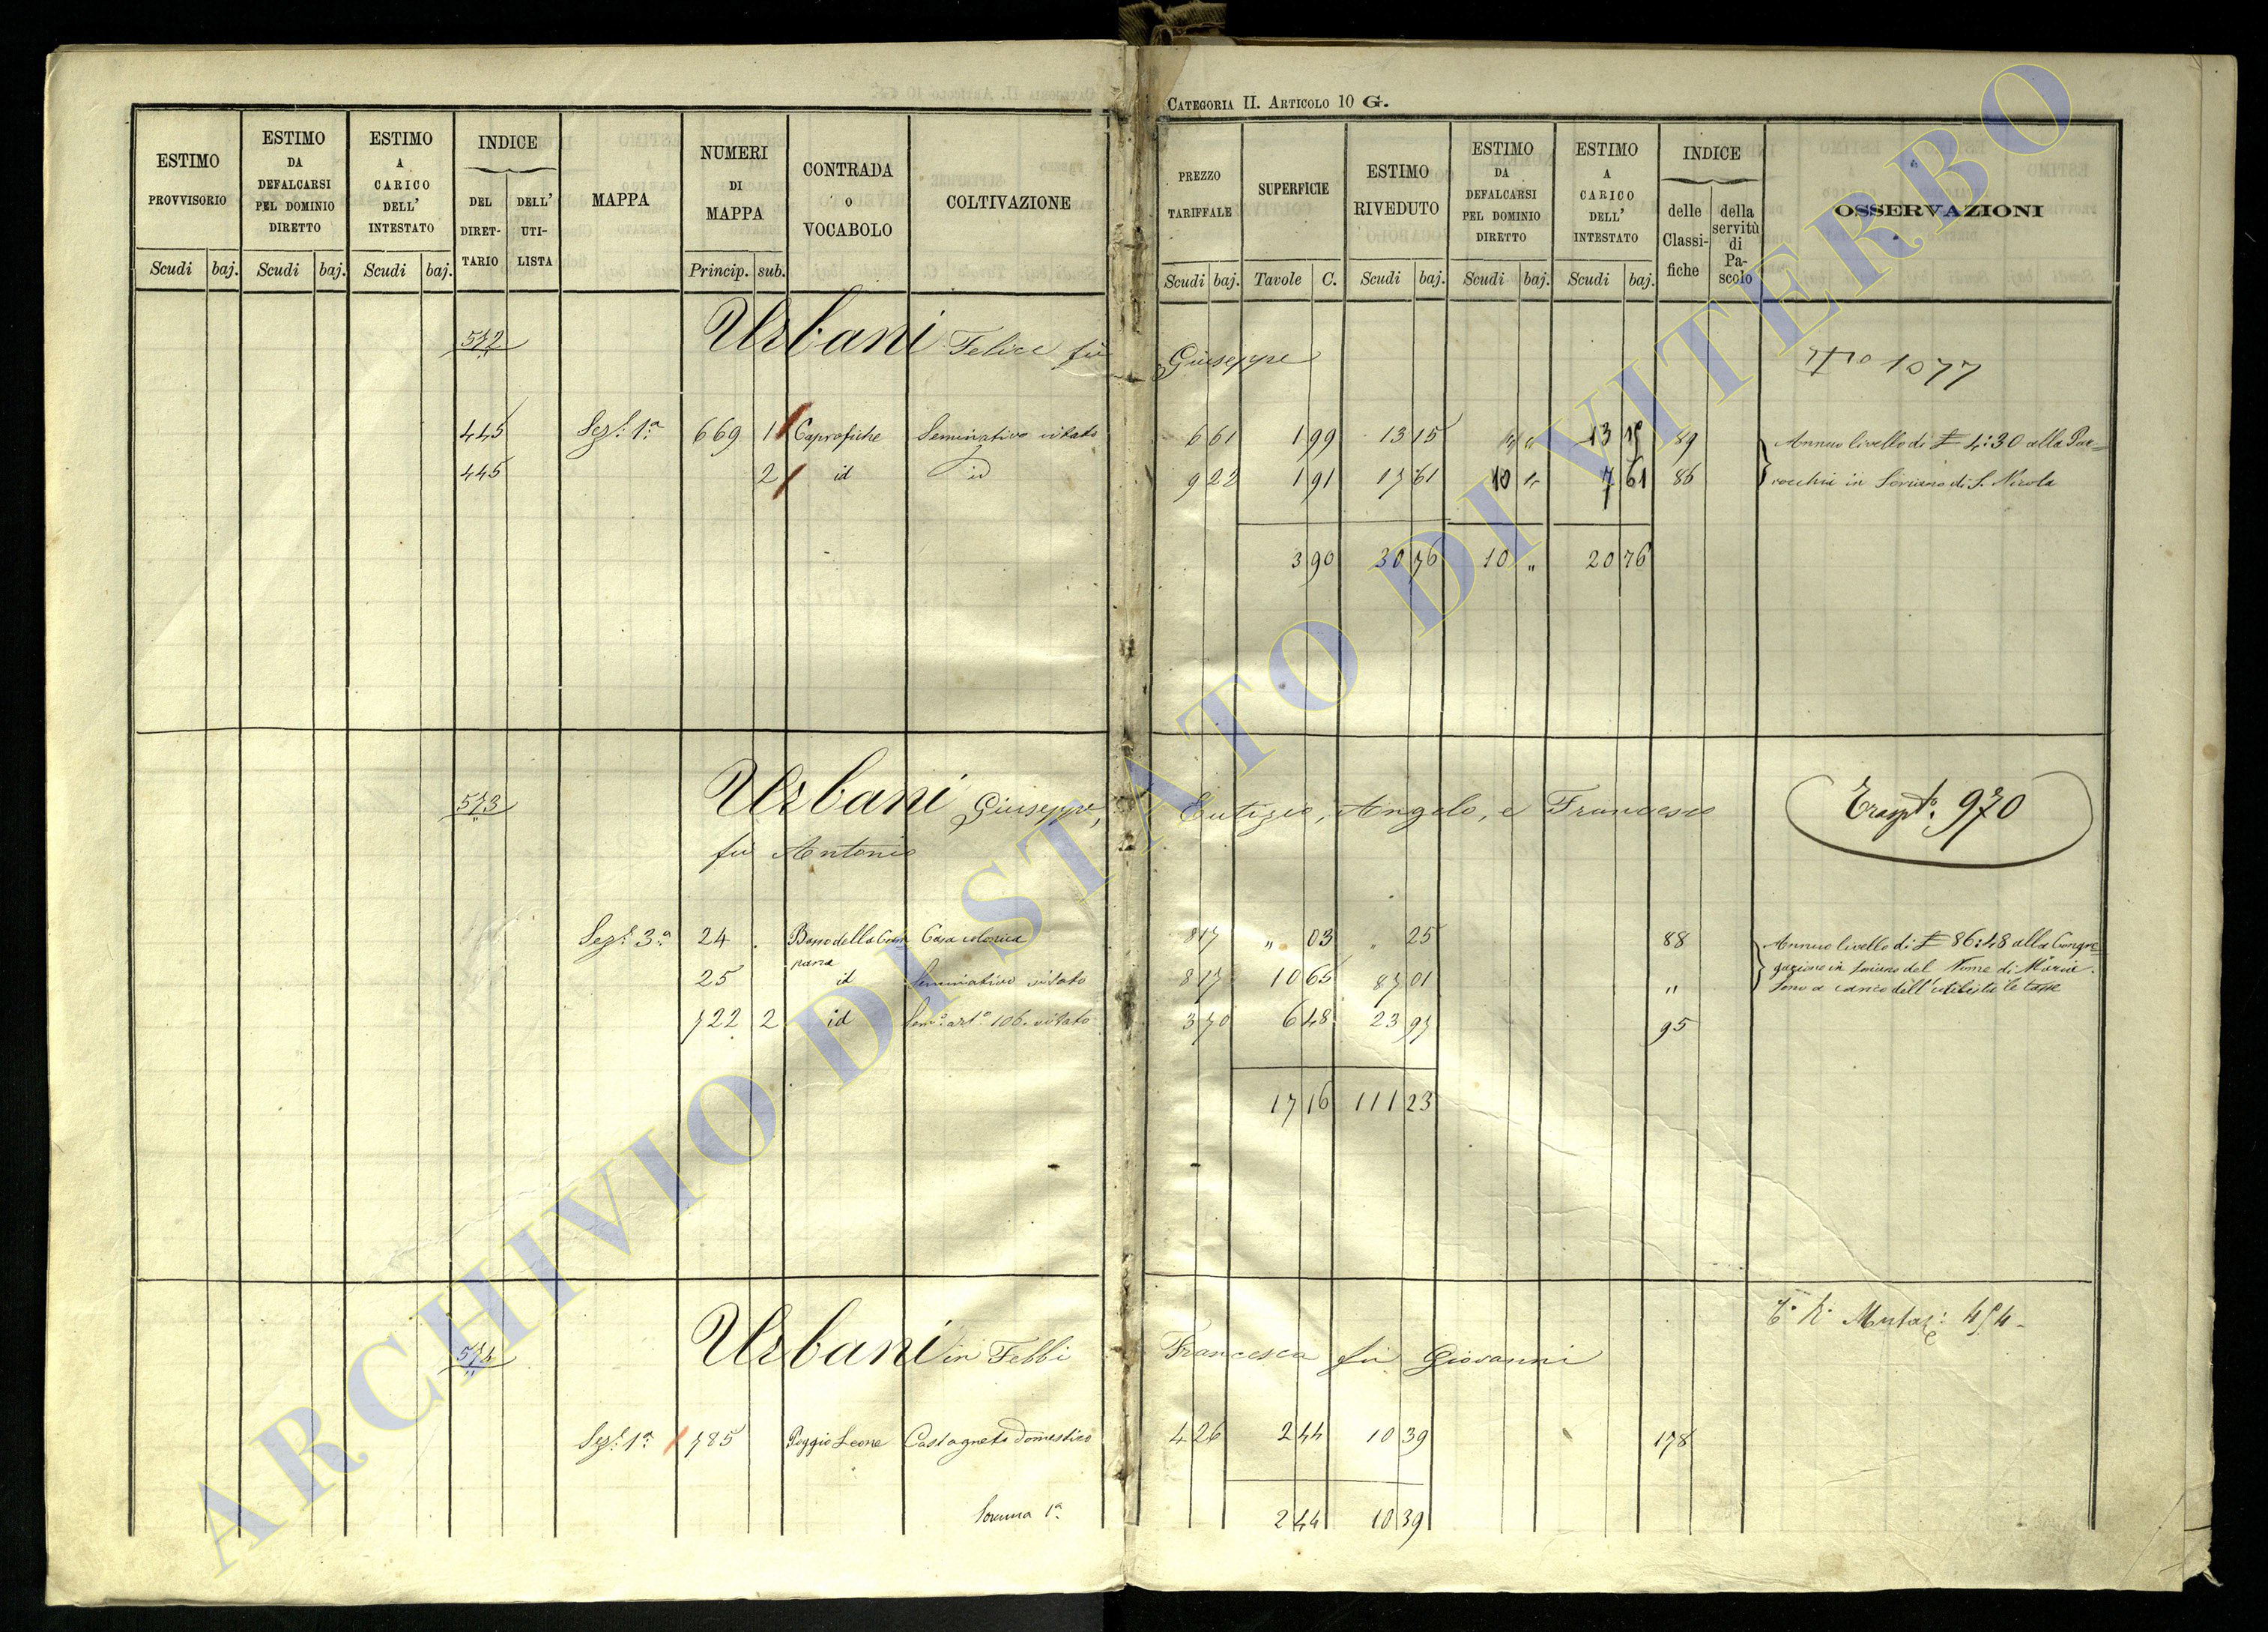 CATEGORIA II. ARTICOLO 10 G.
ESTIMO PROVVISORIO
ESTIMO DA DEFALCARSI PEL DOMINIO DIRETTO
ESTIMO A CARICO DELL' INTESTATO
INDICE
DEL DIRET-TARIO
DELL' UTI-LISTA
MAPPA
NUMERI DI MAPPA
CONTRADA O VOCABOLO
COLTIVAZIONE
PREZZO TARIFFALE
SUPERFICIE
ESTIMO RIVEDUTO
ESTIMO DA DEFALCARSI PEL DOMINIO DIRETTO
ESTIMO A CARICO DELL' INTESTATO
INDICE
delle Classi-fiche
della servitù di Pa-scolo
OSSERVAZIONI
Scudi baj. Scudi baj. Scudi baj. Princip. sub. Scudi baj. Tavole C. Scudi baj. Scudi baj. Scudi baj.
572 Urbani Felice fu Giuseppe 1077
445 Sez.e 1a 669 1 Caprofiche Seminativo vitato 6 61 1 99 13 15 " " 13 15 89 Annuo livello di £ 4:30 alla Par=
445 2 id id 9 22 1 91 17 61 10 " 7 61 86 rocchia in Soriano di S. Nicola
3 90 30 76 10 " 20 76
573 Urbani Giuseppe, Eutizio, Angelo, e Francesco Trasp.to 970
fu Antonio
Sez.e 3a 24 . Basso della Cam Casa colonica 8 17 " 03 " 25 88 Annuo livello di £ 86:48 alla Congre=
pana
25 id Seminativo vitato 8 17 10 65 87 01 " gazione in Soriano del Nome di Maria.
Sono a carico dell'utilista le tasse
722 2 id Sem.o art.o 106. vitato 3 70 6 48 23 97 95
17 16 111 23
574 Urbani in Febbi Francesca fu Giovanni
Mutaz.e 454
Sez.e 1a 785 Poggio Leone Castagneto Domestico 4 26 2 44 10 39 178
Somma 1a 2 44 10 39
ARCHIVIO DI STATO DI VITERBO